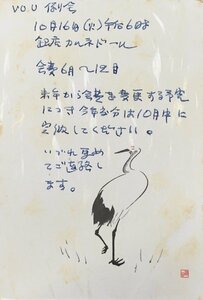 VOU 例会
10月16日(火)午后6時
銀座カルネドール
会費6月〜12月
来年から会費を変更する予定
につき今年度分は10月中に
完納してください。
いづれ更め
てご連絡し
ます。